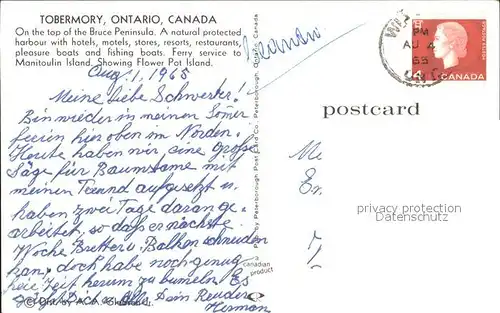 TOBERMORY, ONTARIO, CANADA
On the top of the Bruce Peninsula. A natural protected
harbour with hotels, motels, stores, resorts, restaurants,
pleasure boats and fishing boats. Ferry service to
Manitoulin Island. Showing Flower Pot Island.
Aug. 1, 1965
Meine liebe Schwester.
Bin wieder in meinen Somer
ferien hier oben im Norden.
Heute haben wir eine große
Säge für Baumstame mit
meinen Freund aufgesetzt u.
haben zwei Tage daran ge-
arbeitet, so daß er nächste
Woche Bretter u. Balken schneiden
kan, doch habe noch genug
freie Zeit herum zu bumeln. Es
grüßt Dich u. Alle Dein Bruder
Herman
PM
AU 4
CANADA
4
postcard
a canadian product
privacy protection
Datenschutz